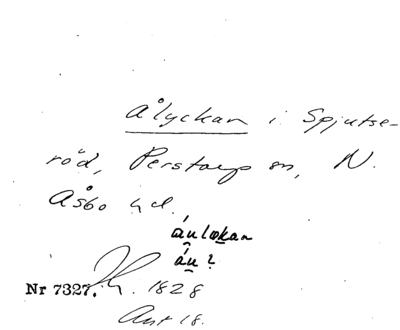 Ålyckan i Spjutse-
röd, Perstorp sn, N.
Åsbo hd.
áu̯lækan
áu̯?
Nr 7327. Lh. 1828
Ant 18.